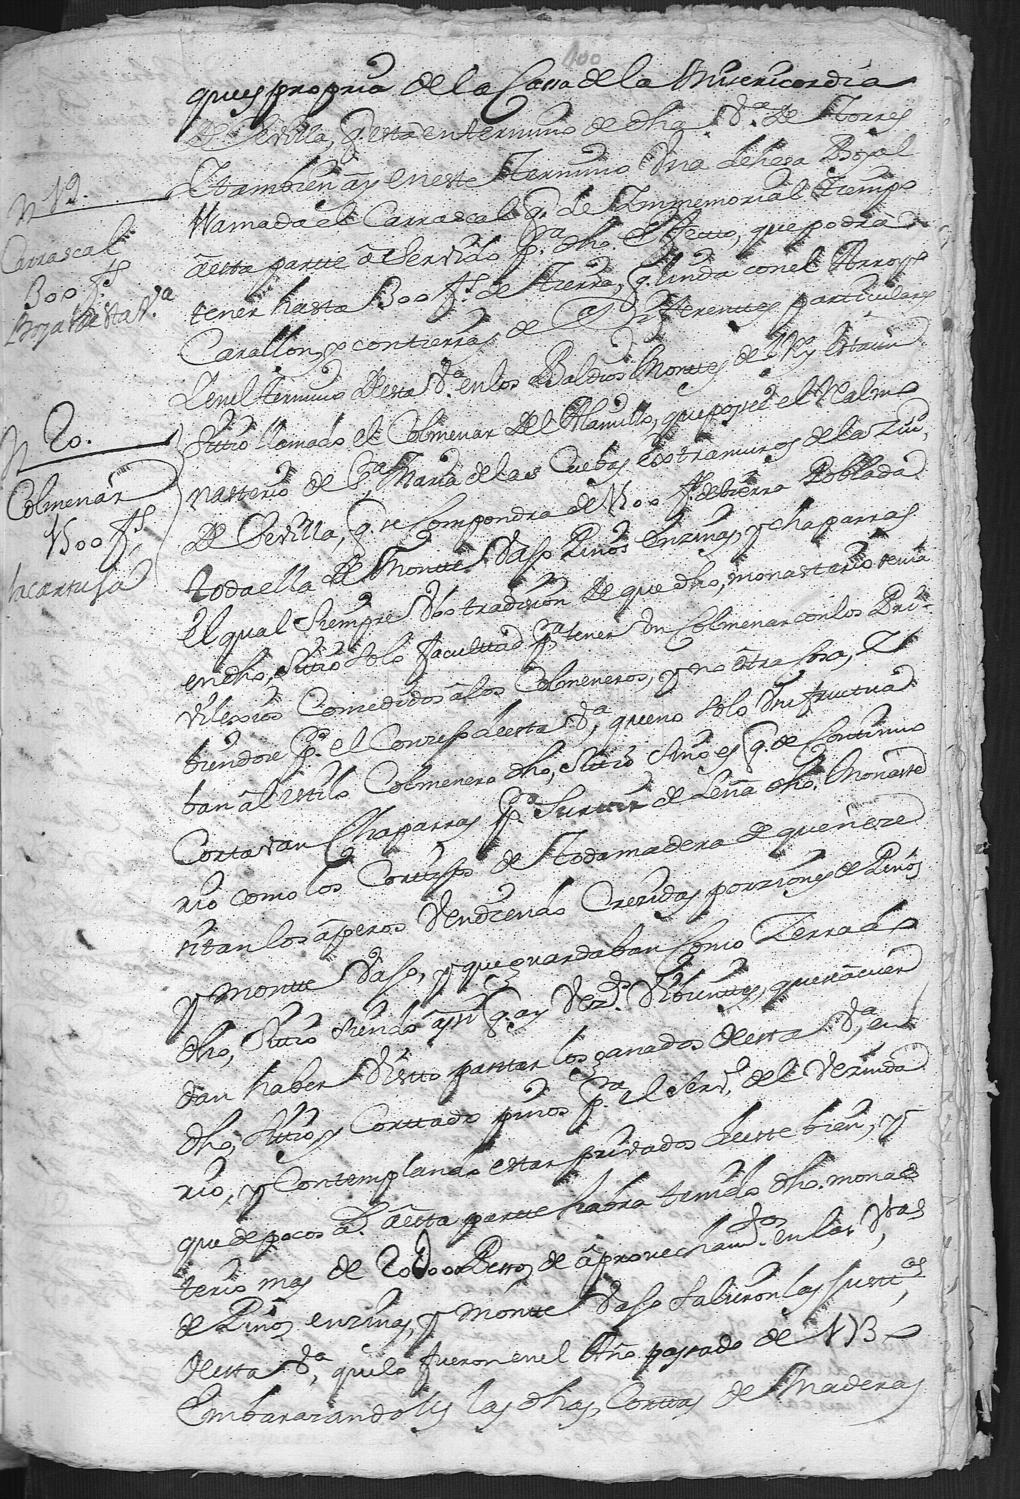 100
que es propria de la Cassa de la Misericordia
de Sevilla, q. esta en termino de dha. Va. de Torres
N 19.
Carrascal
300 fs
Boyal desta Va.
Y tambien ay en este Termino Una dehesa Boyal
llamada el Carrascal q. de Inmemorial Tiempo
a esta partte a Servido pa. dho. Efecto, que podra
tener hasta 300 fs. de Tierra, q. linda con el Arroyo
Carallon, y con tierras de Diferentes particulares
Y en el termino desta Va. en los Baldios Montes de
N 20.
Colmenar
1500 fs
la cartuja
Sittio llamado el Colmenar del Alamillo, que posee el Rl. mo
nasterio de Sta. Maria de las Cuebas Extramuros de la Ziud.
de Sevilla, q. se Compondra de 1500 fs. de tierra Poblada
toda ella de Montte Vajo Pinos enzinas, y chaparras
El qual Siempre Vbo tradizion de que dho, monasterio tenia
en dho, Sittio Solo facultad pa. tener Un Colmenar con los Pri-
vilexios Comzedidos a los Colmeneros, y no otra Cosa,
biendose pr. el Conzejo desta Va, que no solo Usufructua
ban al estilo Colmenero dho, Sittio Sino es q. de Continuo
Cortavan Chaparras pa. Surttir de Leña dho. Monaste
rio como los Cortijos de toda madera de que neze
sitan los aperos Vendiendo Crezidas porziones de Pinos
y Montte Vajo, y que guardaban Como Zerrado
dho, Sittio siendo asi q. ay Vezos. Vibientes, que se acuer
dan haber Visto pastar los ganados desta Va, en
dho, Sittio y Corttado pinos pa. el Servo. del Vezinda
rio, y Contemplando estar privados deste bien, y
que de pocos as. a esta partte habra tenido dho. monas
terio mas de 20000 Pessos de aprovecham.tos en las
de Pinos enzinas, y Montte Vajo Salieron las Justas.
desta Va, que lo fueron en el Año pasado de 173
Embarazandoles las dhas, Corttas de Maderas